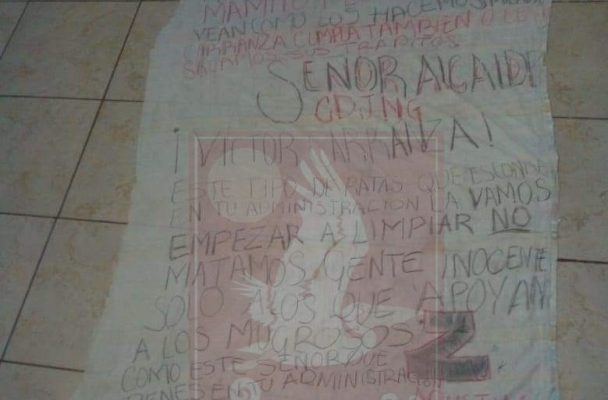 MAMIT
VEAN COMO LOS HACEMOS
CUMPLA TAMBIEN O LE
SACAMOS SUS TRAPITOS
SEÑOR ALCALDE
CDJNG
¡VICTOR ARRAIZA!
ESTE TIPO DE RATAS QUE ESCONDE
EN TU ADMINISTRACION LA VAMOS
EMPEZAR A LIMPIAR NO
MATAMOS GENTE INOCENTE
SOLO A LOS QUE APOYAN
A LOS MUGROSOS Z
COMO ESTE SEÑOR QUE
TIENES EN TU ADMINISTRACION